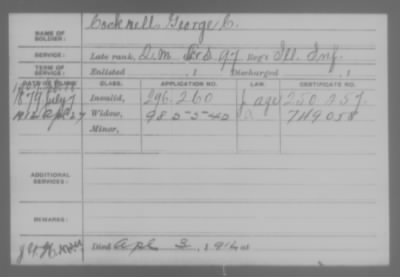 NAME OF SOLDIER: Cocknell, George C.
SERVICE: Late rank, Q.M. Sr'd 97 Reg't Ill. Inf.
TERM OF SERVICE: Enlisted , 1 Discharged , 1
DATE OF FILING. CLASS. APPLICATION NO. LAW. CERTIFICATE NO.
1879 July 7 Invalid, 296.260 250.257.
1912 Apl 27 Widow, 985542 749058
Minor,
ADDITIONAL SERVICES:
REMARKS:
Died Apl 3, 191 at